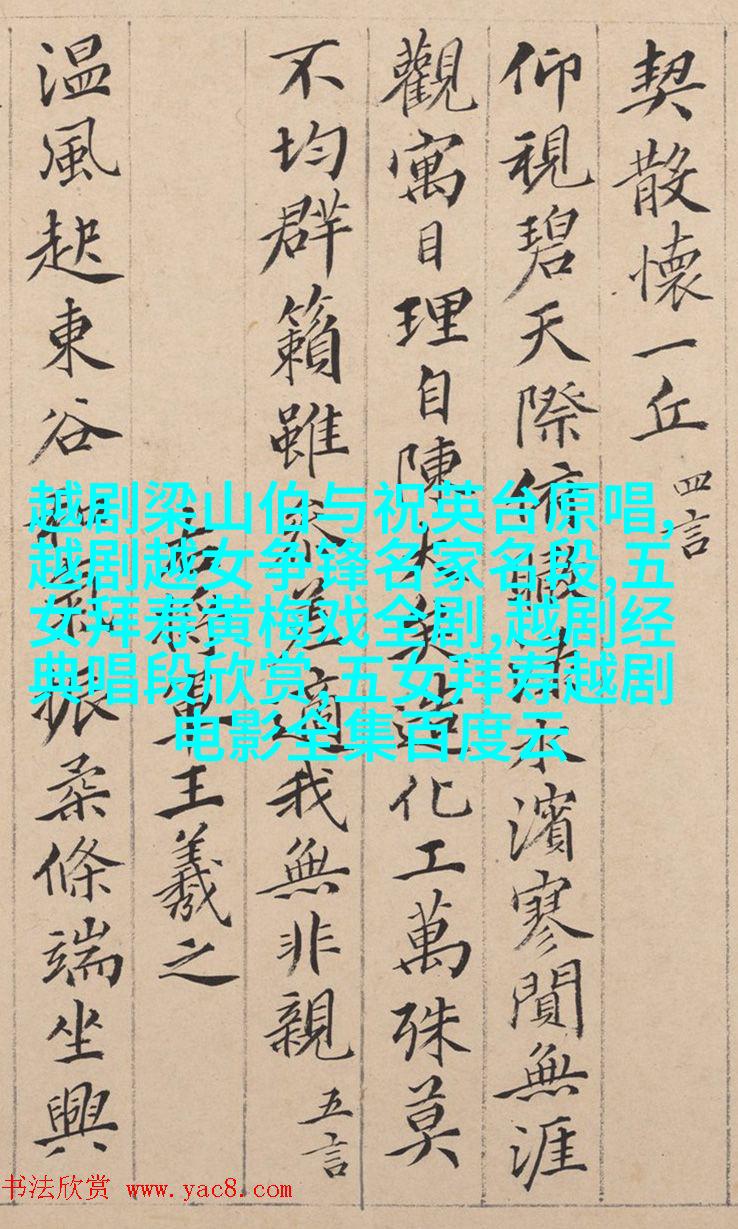 契散懷一丘 四言
仰視碧天際俯瞰淥水濱寥閴無涯
觀寓目理自陳大矣造化工萬殊莫
不均群籟雖參差適我無非親 五言
右將軍王羲之
温風起東谷和氣振柔條端坐興
越剧梁山伯与祝英台原唱,
越剧越女争锋名家名段,五
女拜寿黄梅戏全剧,越剧经
典唱段欣赏,五女拜寿越剧
电影全集百度云
书法欣赏 www.yac8.com